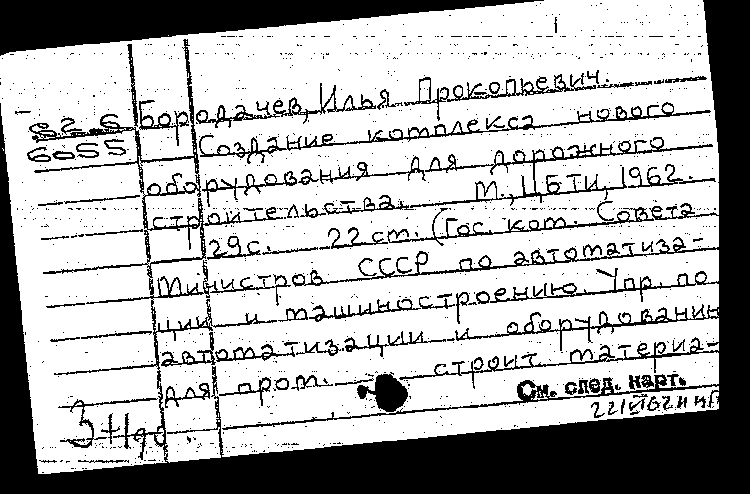 Бородачев, Илья Прокопьевич.
62.6
6055
Создание комплекса нового
оборудования для дорожного
строительства. М., ЦБТИ, 1962.
29с. 22 см. (Гос. ком. Совета
Министров СССР по автоматиза-
ции и машиностроению. Упр. по
автоматизации и оборудованию
для пром. строит. материа-
См. след. карт.